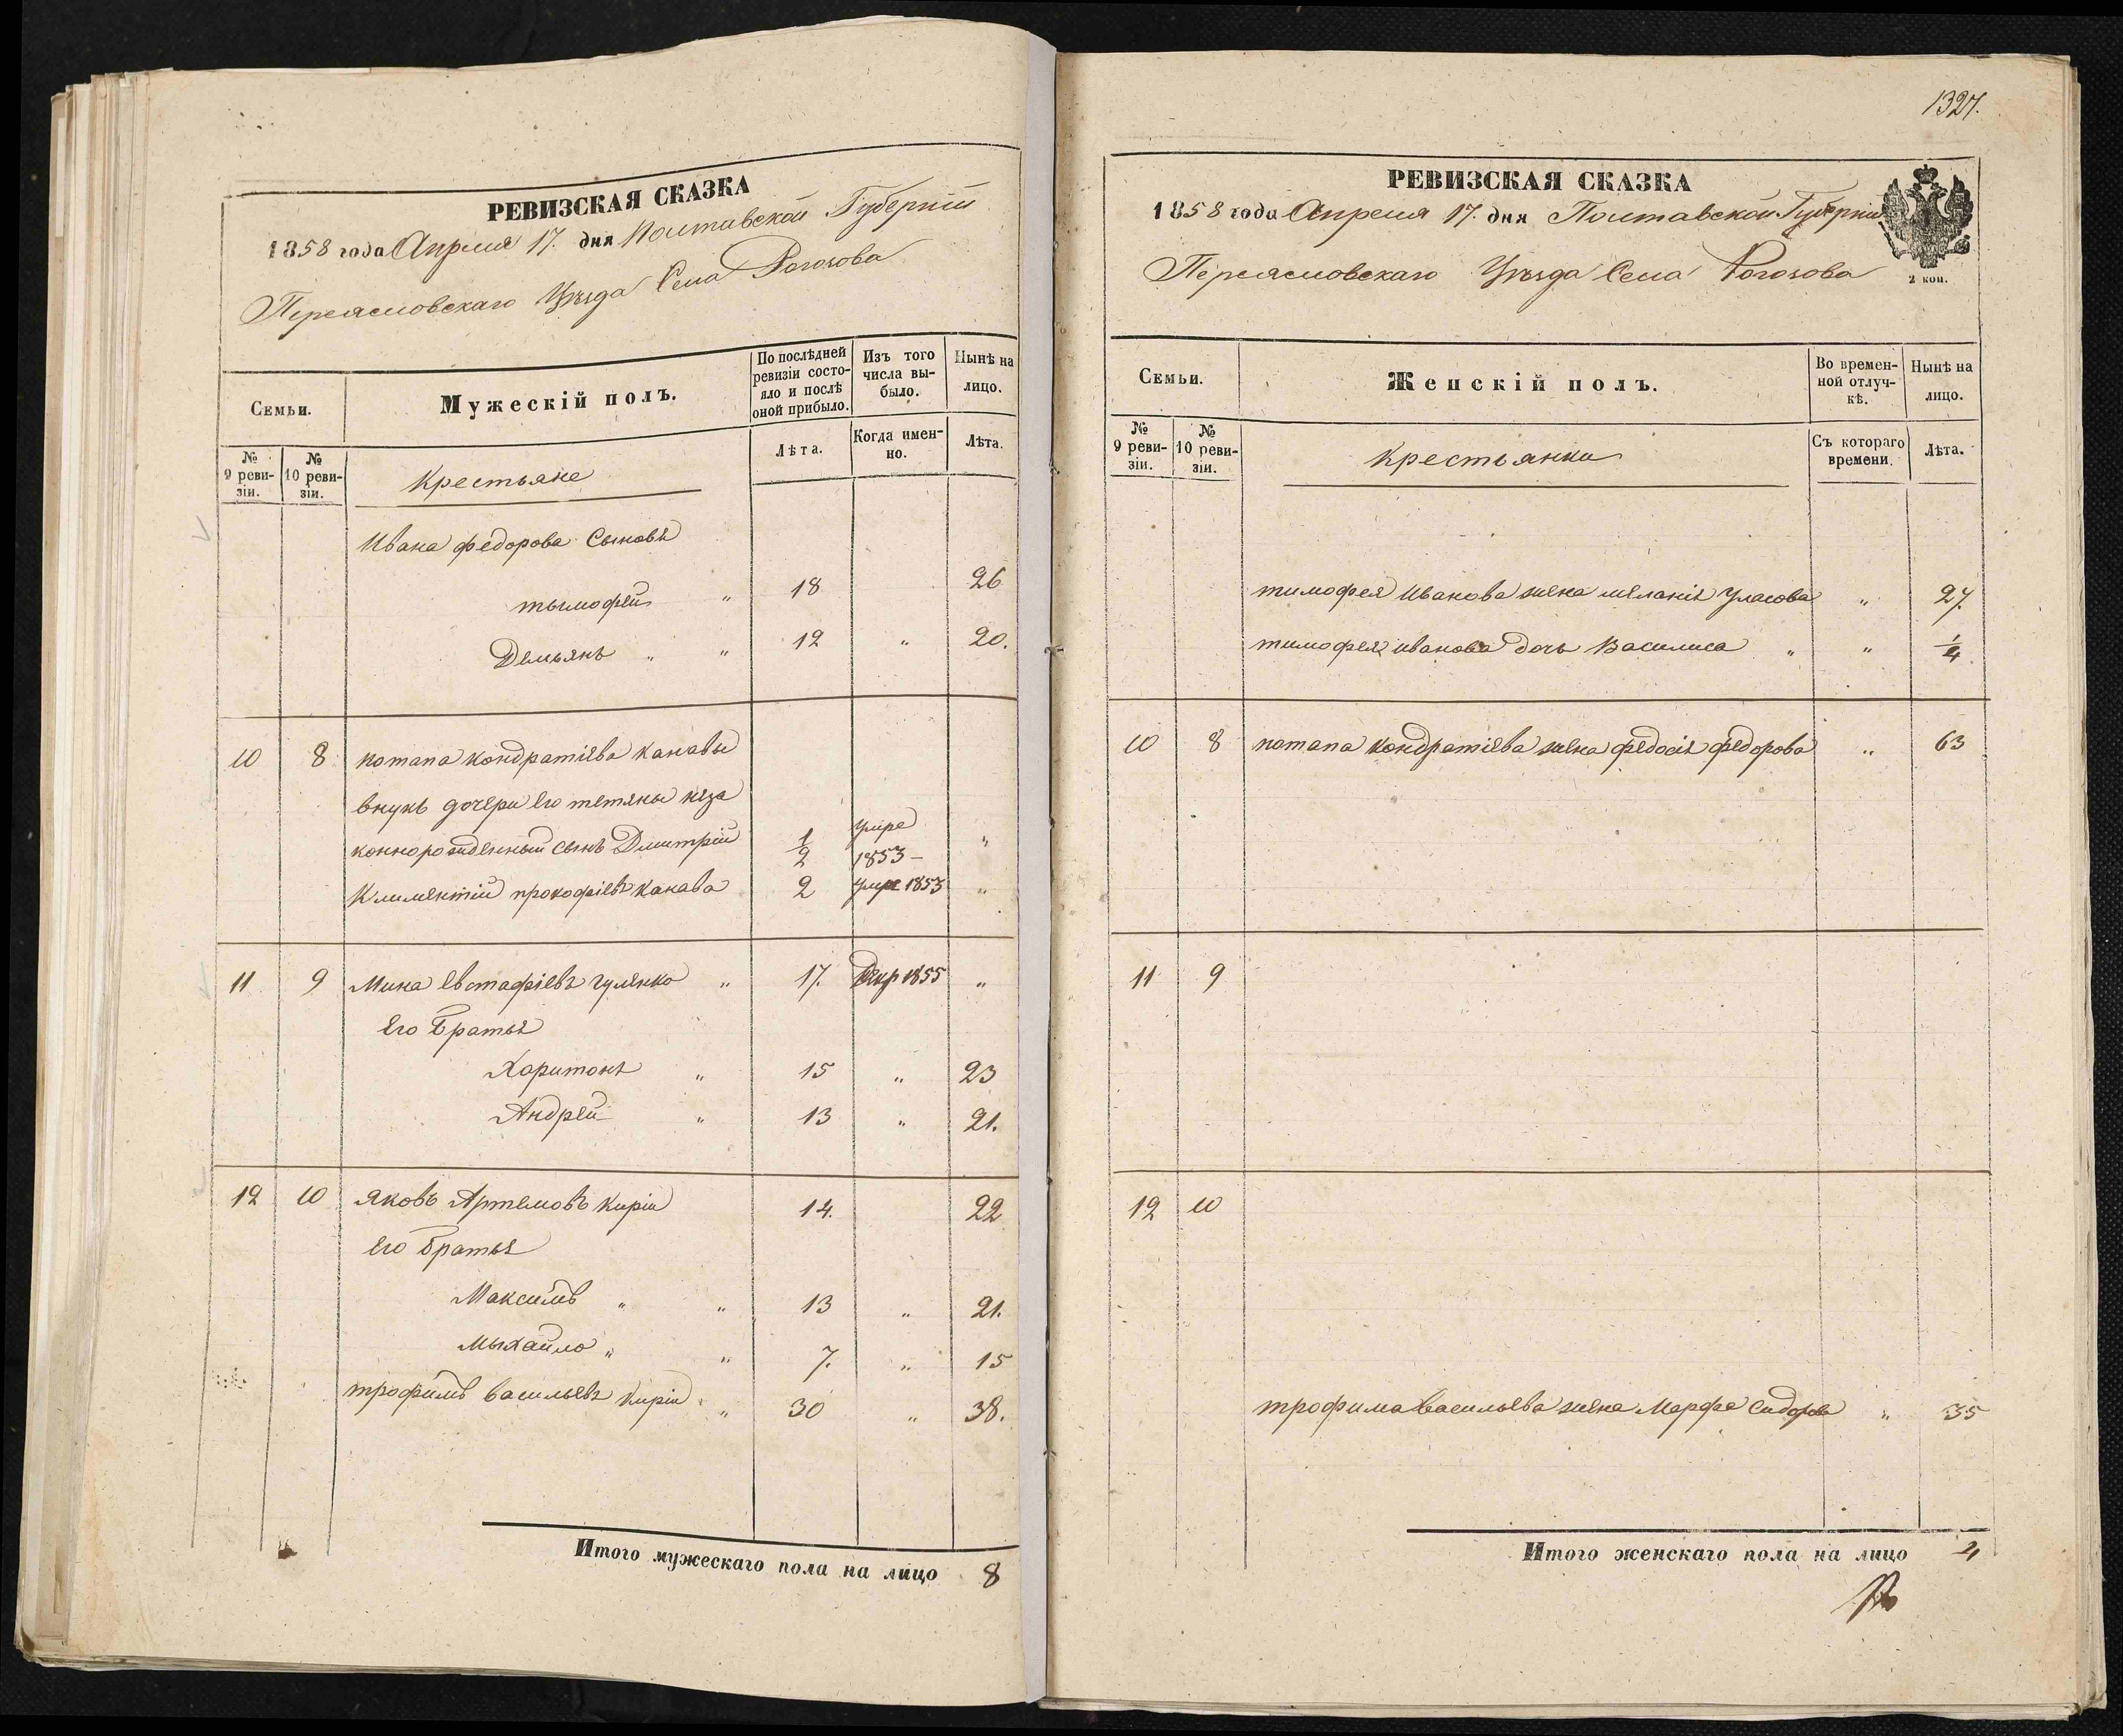 РЕВИЗСКАЯ СКАЗКА
1858 года Апреля 17. дня Полтавской Губерніи
Переясловскаго Уѣзда Села Рогозова
Семьи.
Мужескій полъ.
По послѣдней ревизіи состояло и послѣ оной прибыло.
Изъ того числа выбыло.
Нынѣ на лицо.
№ 9 ревизіи.
№ 10 ревизіи.
Крестьяне
Лѣта.
Когда именно.
Лѣта.
Ивана федорова Сыновъя
тымофей " 18 26
Демьянъ " " 12 " 20.
10 8 потапа кондратіева канавы
внукъ дочери его тетяны неза
коннорожденный сынъ Дмитрій 1/2 умре 1853 – "
Климентій прокофіевъ канава 2 умре 1853 "
11 9 Мина Евстафіевъ гуленко " 17. Рекр 1855 "
Его Братья
Харитонъ " 15 " 23
Андрей " 13 " 21.
12 10 Яковъ Артемовъ кирій 14. 22
Его братья
Максимъ " " 13 " 21.
Мыхайло " " 7. " 15
трофимъ васильевъ кирій " 30 " 38.
Итого мужескаго пола на лицо 8
1327.
РЕВИЗСКАЯ СКАЗКА
1858 года Апреля 17. дня Полтавской Губерніи
Переясловскаго Уѣзда Села Рогозова
2 коп.
Семьи.
Женскій полъ.
Во временной отлучкѣ.
Нынѣ на лицо.
№ 9 ревизіи.
№ 10 ревизіи.
Крестьянки
Съ котораго времени.
Лѣта.
тимофея Иванова жена меланія Уласова " 27.
тимофея иванова дочь Василиса " " 1/4
10 8 потапа кондратіева жена федосія федорова " 63
11 9
12 10
трофима васильева жена Марфа Сидорова " 35
Итого женскаго пола на лицо 4